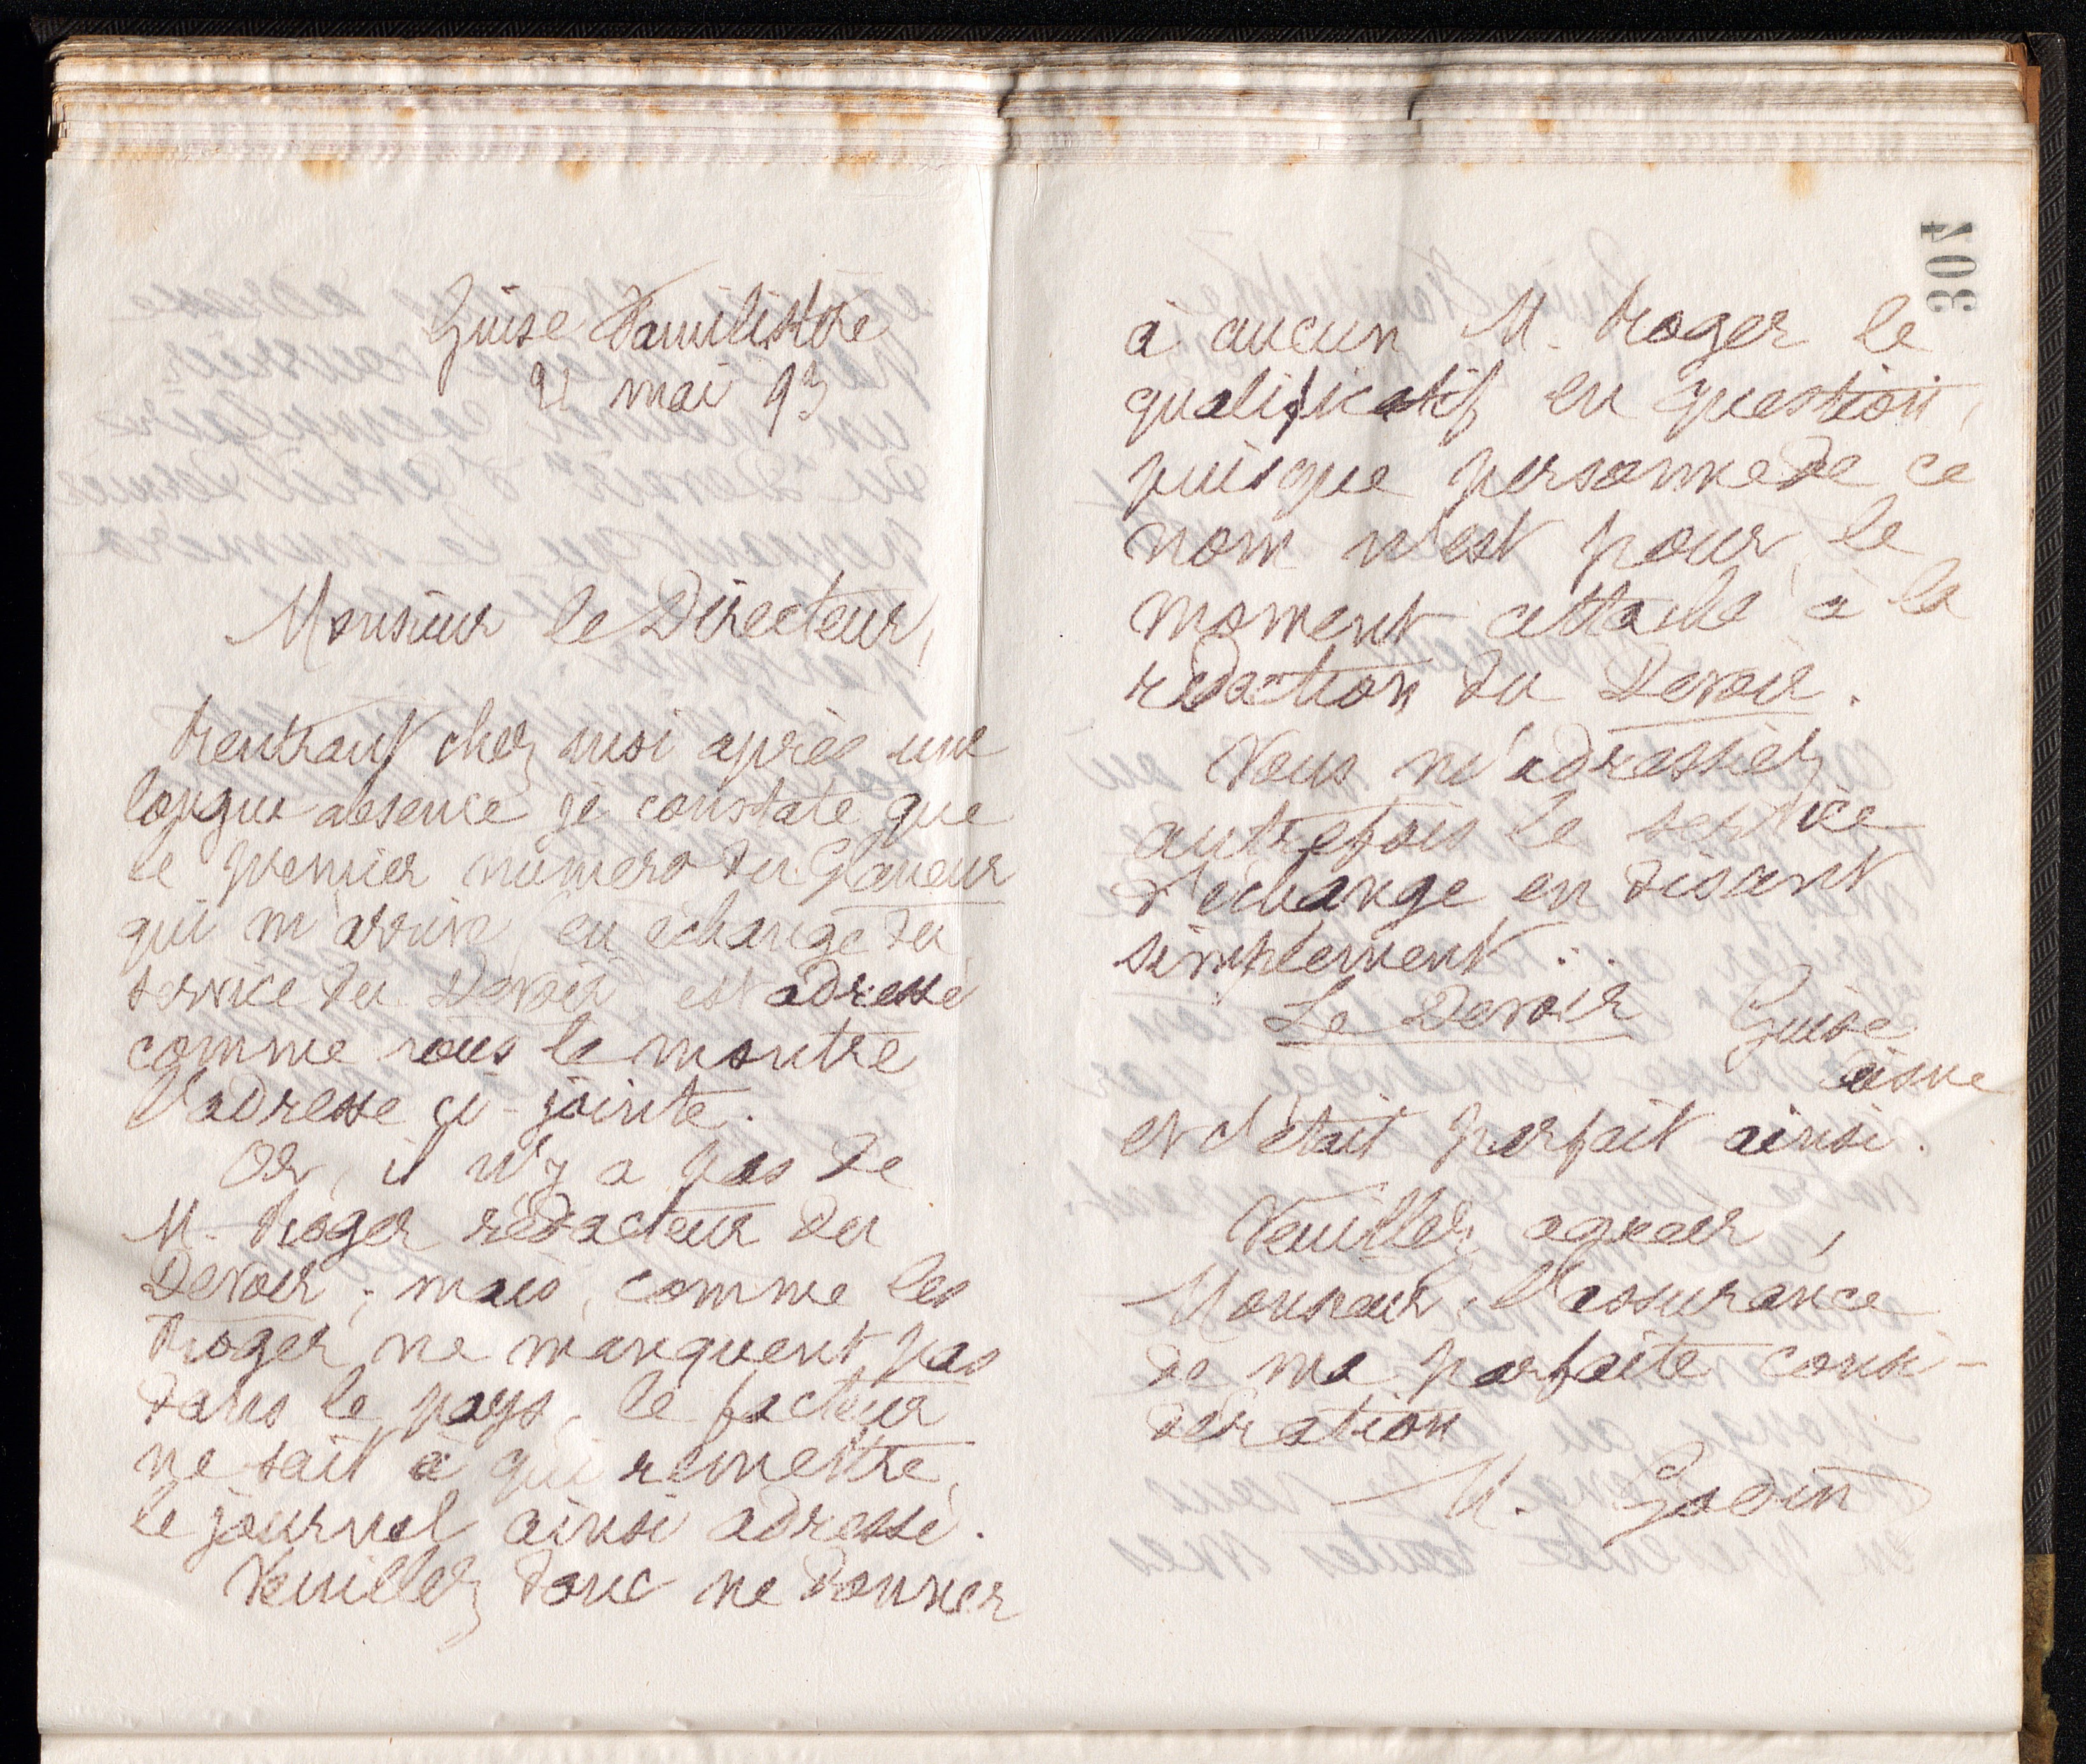 Guise Familistère
21 mai 93
Monsieur le Directeur,
Rentrant chez moi après une
longue absence je constate que
le premier numéro du Glaneur
qui m'arrive en échange du
service du Devoir est adressé
comme vous le montre
l'adresse ci-jointe.
Or, il n'y a pas de
M. Roger rédacteur du
Devoir ; mais, comme les
Roger ne manquent pas
dans le pays, le facteur
ne sait à qui remettre
le journal ainsi adressé.
Veuillez donc ne donner
307
à aucun M. Roger le
qualificatif en question,
puisque personne de ce
nom n'est pour le
moment attaché à la
rédaction du Devoir.
Vous m'adressiez
autrefois le service
d'échange en disant
simplement :
Le Devoir Guise
aisne
et c'était parfait ainsi.
Veuillez agréer,
Monsieur, l'assurance
de ma parfaite consi-
dération
M. Godin